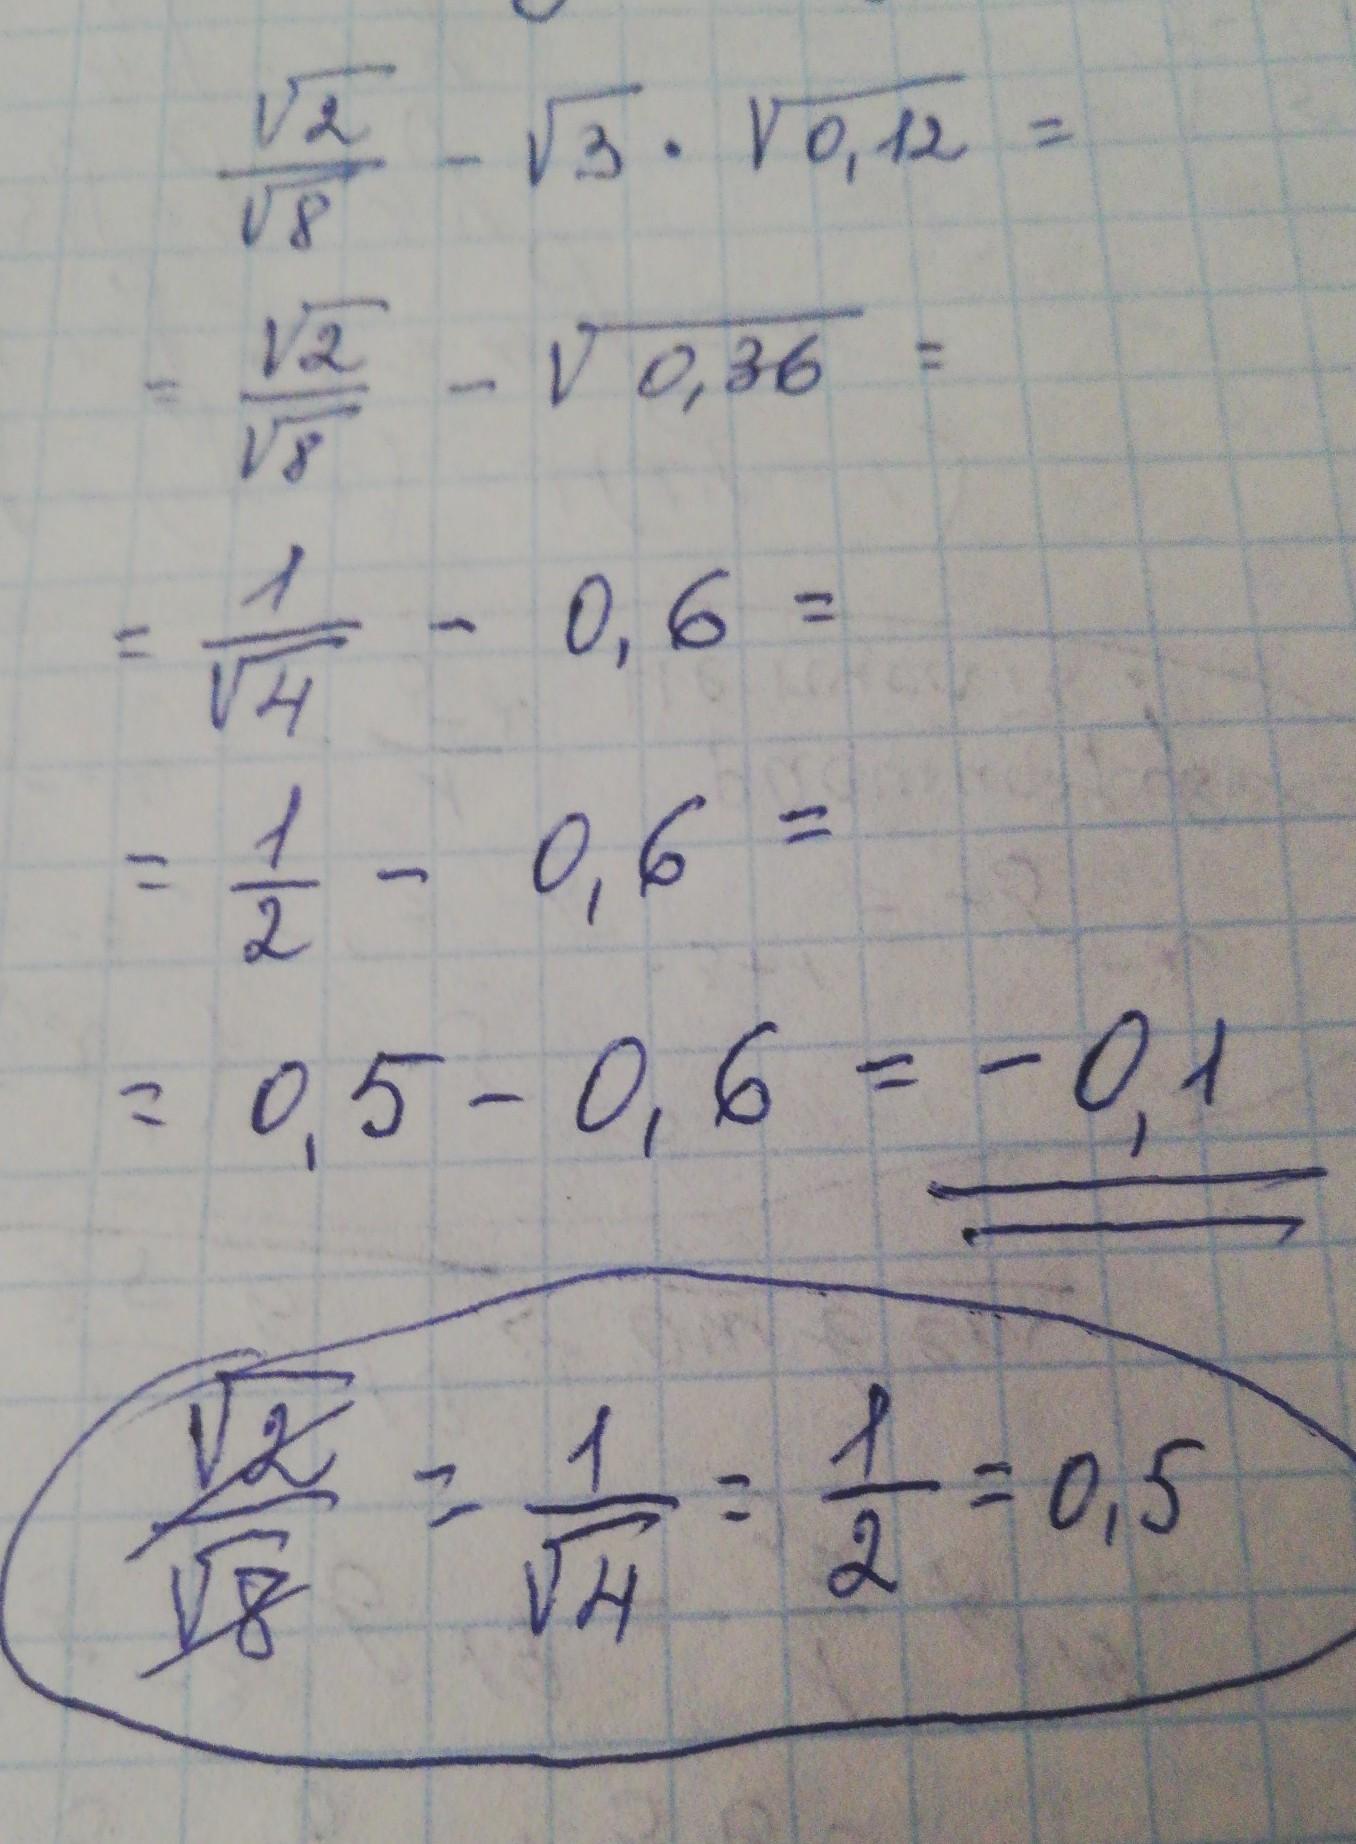 √2/√8 - √3 · √0,12 =
= √2/√8 - √0,36 =
= 1/√4 - 0,6 =
= 1/2 - 0,6 =
= 0,5 - 0,6 = - 0,1
√2/√8 = 1/√4 = 1/2 = 0,5